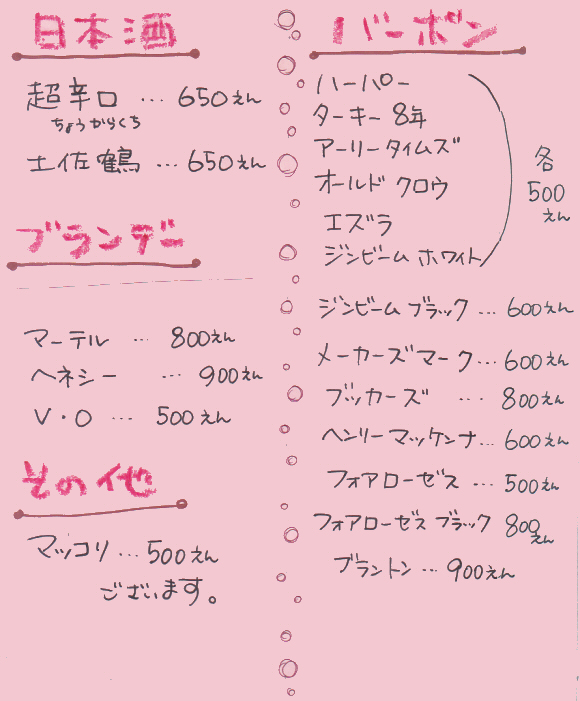 日本酒
超辛口 … 650えん
ちょうからくち
土佐鶴 … 650えん
ブランデー
マーテル … 800えん
ヘネシー … 900えん
V・O … 500えん
その他
マッコリ … 500えん
ございます。
バーボン
ハーパー
ターキー 8年
アーリータイムズ
オールド クロウ
エズラ
ジンビーム ホワイト
各
500
えん
ジンビーム ブラック … 600えん
メーカーズマーク … 600えん
ブッカーズ … 800えん
ヘンリーマッケンナ … 600えん
フォアローゼス … 500えん
フォアローゼス ブラック 800
えん
ブラントン … 900えん